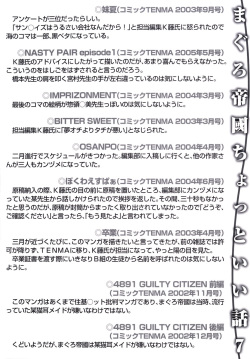 まぐろ帝國ちょっといい話7
◎妹夏(コミックTENMA 2003年9月号)
アンケートが三位だったらしい。
「サン○イズはうるさい会社なんだから!」と担当編集K藤氏に怒られたので
海のコマは一部、黒べタになっている。
◎NASTY PAIR episode1(コミックTENMA 2005年5月号)
K藤氏のアドバイスにしたがって描いたのだが、あまり喜んでもらえなかった。
こういうのをはしごをはずされると言うのだろう。
橋本先生の肩を叩く奥村先生の手が左右違っているのは気にしないように。
◎IMPRIZONMENT(コミックTENMA 2004年3月号)
最後のコマの絵柄が
◎BITTER SWEET(コミックTENMA 2003年3月号)
担当編集K藤氏に「夢オチよりタチが悪い」となじられた。
◎OSANPO(コミックTENMA 2004年4月号)
二月進行でスケジュールがきつかった。編集部に入稿しに行くと、他の作家さ
んが三人もカンヅメになっていた。
◎ぼくわえすぱぁ(コミックTENMA 2004年6月号)
原稿納入の際、K藤氏の目の前に原稿を置いたところ、編集部にカンヅメにな
っていた某先生から話しかけられたので挨拶を返した。その間、三十秒もなかっ
たと思うのだが、原稿が封筒からまったく取り出されていなかったので「どうぞ、
ご確認ください」と言ったら、「もう見たよ」と言われてしまった。
◎卒業(コミックTENMA 2003年4月号)
三月が近づくたびに、このマンガを描きたいと言ってきたが、前の雑誌では許
可が降りず、TENMAに移り、K藤氏が担当になって、やっと陽の目を見た。
卒業証書を渡す際にいきなりB組の生徒から名前を呼ばれてるのは気にしない
ように。
◎4891 GUILTY CITIZEN 前編
(コミックTENMA 2002年11月号)
このマンガはあくまで住基○ット批判マンガであり、まぐろ帝國は当時、流行
っていた某猫耳メイドに対する嫌がなわけでない。
◎4891 GUILTY CITIZEN 後編
(コミックTENMA 2002年12月号)
くどいようだが、まぐろ帝國は某猫耳メイドが嫌いなわけでない。